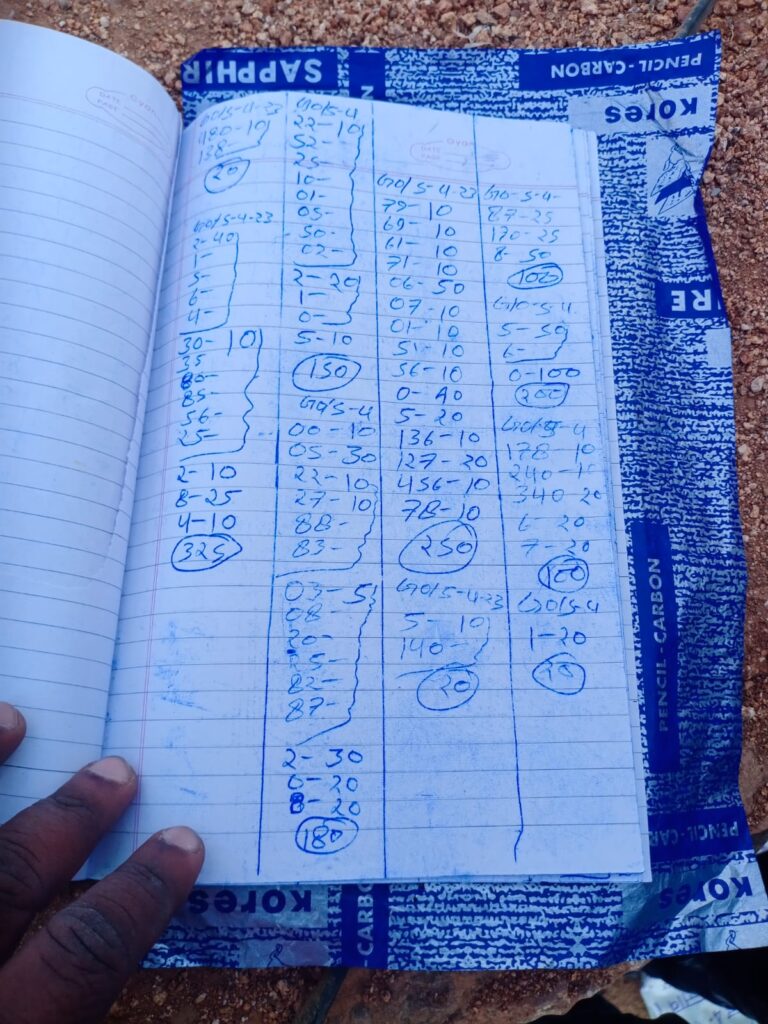 SAPPHIR
PENCIL-CARBON
Kores
GO/5-4-23
480-10
138-
20
GO/5-4-23
2-40
1-
5-
6-
4-
30-10
35
80-
85-
56-
25-
2-10
8-25
4-10
325
GO/5-4
22-10
52-
25-
10-
01-
05-
50-
02-
2-20
1-
0-
5-10
150
GO/5-4
00-10
05-30
22-10
27-10
88-
83-
03-5
08-
20-
82-
87-
2-30
6-20
8-20
180
GO/5-4-23
79-10
69-10
61-10
71-10
06-50
07-10
01-10
51-10
56-10
0-40
5-20
136-10
127-20
456-10
78-10
250
GO/5-4-23
5-10
140-
20
GO-5-4-
87-25
170-25
8-50
100
GO-5-4
5-50
6-
0-100
200
GO/5-4
178-10
240-10
340-20
6-20
7-20
GO/5-4
1-20
IRE
PENCIL-CARBON
PENCIL-CAR
Kores
Kores
-CARBO